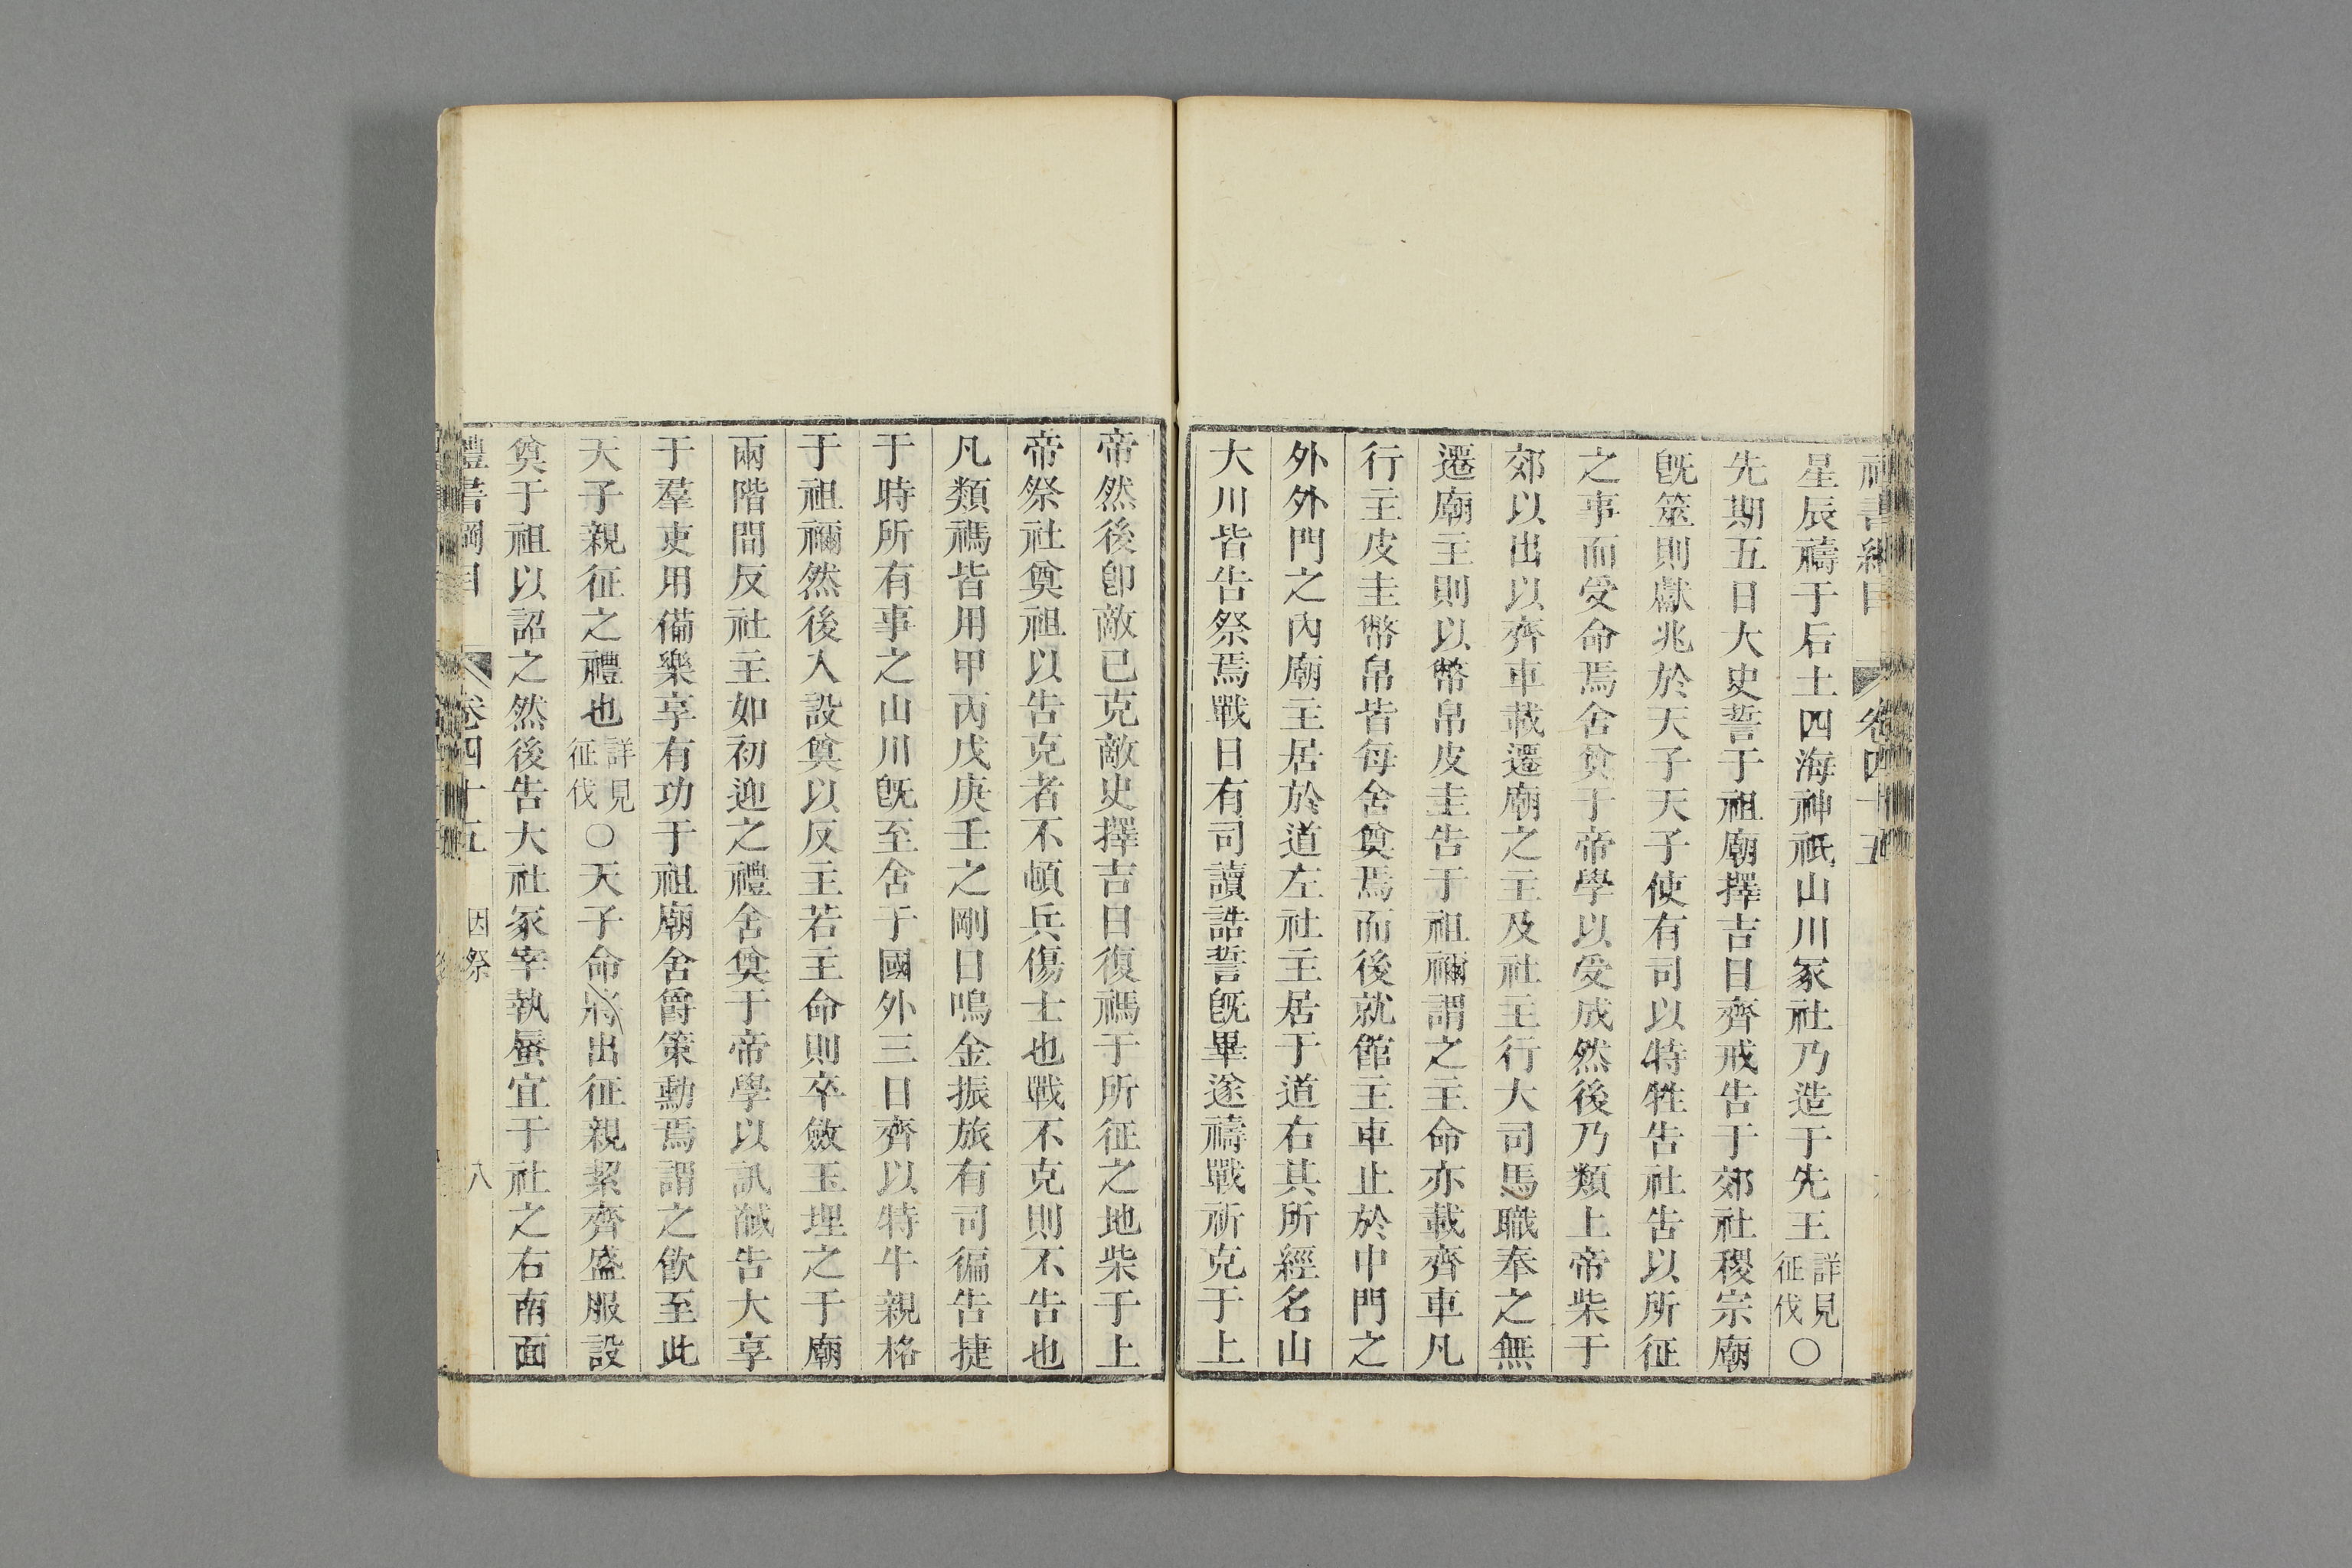 禮書綱目 卷四十五
星辰禱于后土四海神祇山川冢社乃造于先王詳見征伐○
先期五日大史誓于祖廟擇吉日齊戒告于郊社稷宗廟
旣筮則獻兆於天子天子使有司以特牲告社告以所征
之事而受命焉舍奠于帝學以受成然後乃類上帝柴于
郊以出以齊車載遷廟之主及社主行大司馬職奉之無
遷廟主則以幣帛皮圭告于祖禰謂之主命亦載齊車凡
行主皮圭幣帛皆每舍奠焉而後就館主車止於中門之
外外門之內廟主居於道左社主居于道右其所經名山
大川皆告祭焉戰日有司讀誥誓旣畢遂禱戰祈克于上
帝然後卽敵已克敵史擇吉日復禡于所征之地柴于上
帝祭社奠祖以告克者不頓兵傷士也戰不克則不告也
凡類禡皆用甲丙戊庚壬之剛日鳴金振旅有司徧告捷
于時所有事之山川旣至舍于國外三日齊以特牛親格
于祖禰然後入設奠以反主若主命則卒斂玉埋之于廟
兩階間反社主如初迎之禮舍奠于帝學以訊馘告大享
于羣吏用備樂享有功于祖廟舍爵策勳焉謂之飮至此
天子親征之禮也詳見征伐○天子命將出征親絜齊盛服設
奠于祖以詔之然後告大社冢宰執蜃宜于社之右南面
禮書綱目 卷四十五 因祭 八